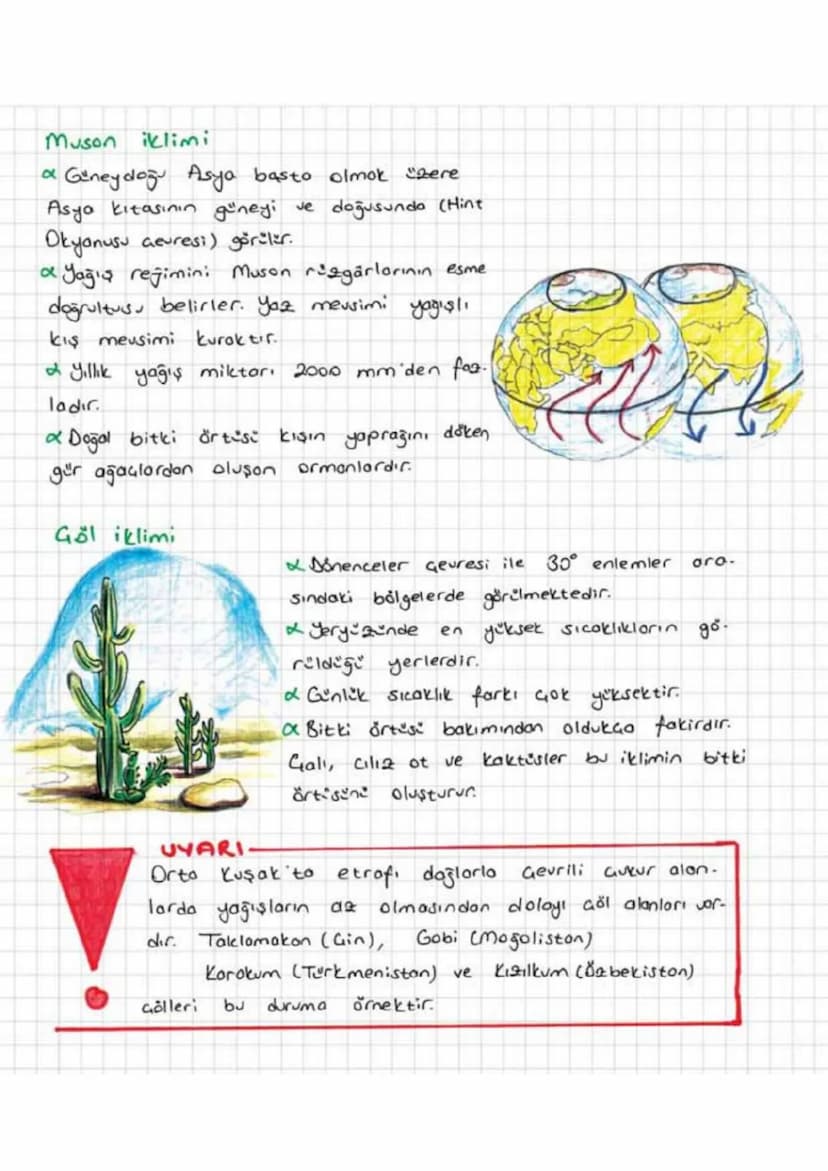 Muson iklimi
∝ Güneydoğu Asya başta olmak üzere
Asya kıtasının güneyi ve doğusunda (Hint
Okyanusu çevresi) görülür.
∝ Yağış rejimini Muson rüzgârlarının esme
doğrultusu belirler. Yaz mevsimi yağışlı
kış mevsimi kuraktır.
∝ Yıllık yağış miktarı 2000 mm'den faz-
ladır.
∝ Doğal bitki örtüsü kışın yaprağını döken
gür ağaçlardan oluşan ormanlardır.
Çöl iklimi
∝ Dönenceler çevresi ile 30° enlemler ara-
sındaki bölgelerde görülmektedir.
∝ Yeryüzünde en yüksek sıcaklıkların gö-
rüldüğü yerlerdir.
∝ Günlük sıcaklık farkı çok yüksektir.
∝ Bitki örtüsü bakımından oldukça fakirdir.
Çalı, cılız ot ve kaktüsler bu iklimin bitki
örtüsünü oluşturur.
UYARI
Orta Kuşak'ta etrafı dağlarla çevrili çukur alan-
larda yağışların az olmasından dolayı çöl alanları var-
dır. Taklamakan (Çin), Gobi (Moğolistan)
Karakum (Türkmenistan) ve Kızılkum (Özbekistan)
çölleri bu duruma örnektir.